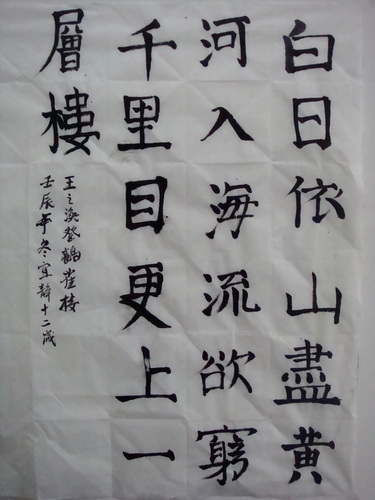 白日依山盡黄
河入海流欲窮
千里目更上一
層樓
王之渙登鶴雀樓
壬辰年冬宜靜十二歲